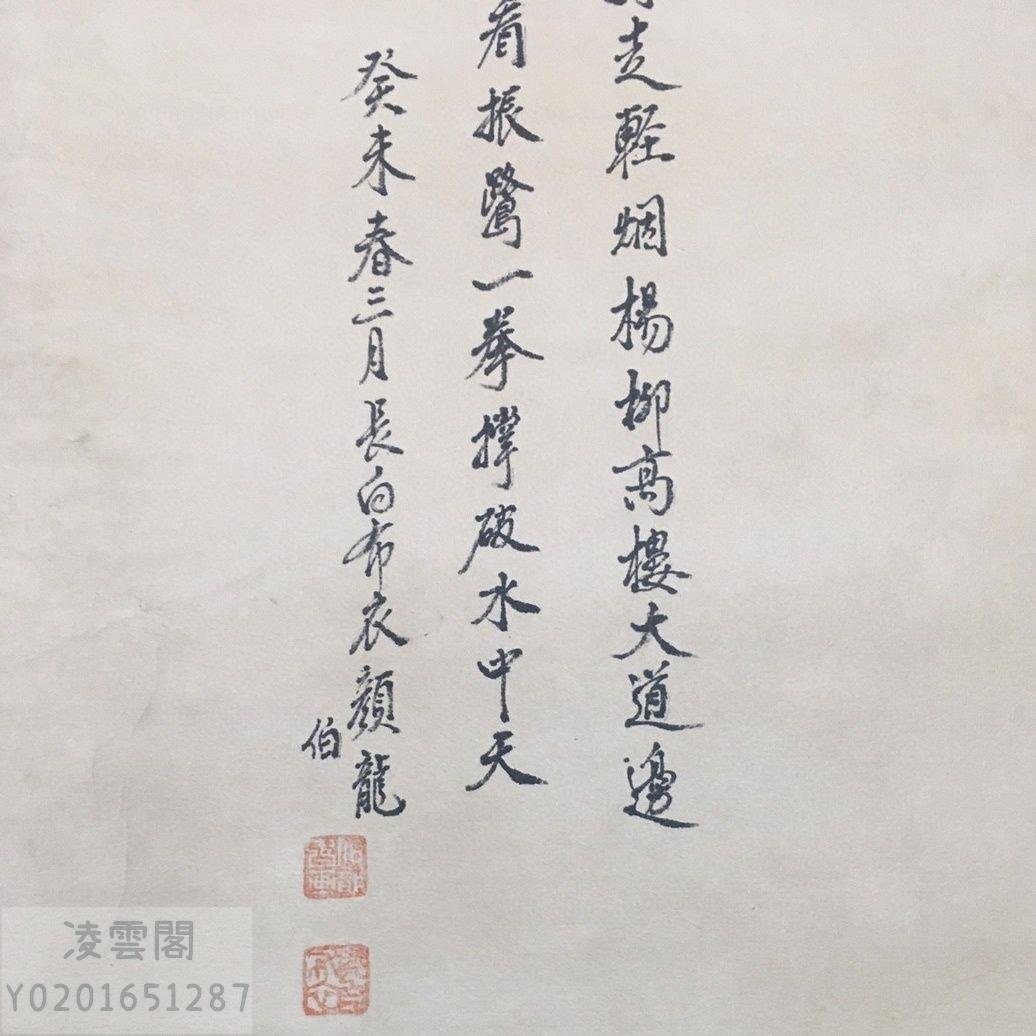 走輕烟楊柳高樓大道邊
看振鷺一拳撑破水中天
癸未春三月長白布衣顏伯龍
凌雲閣
Y0201651287